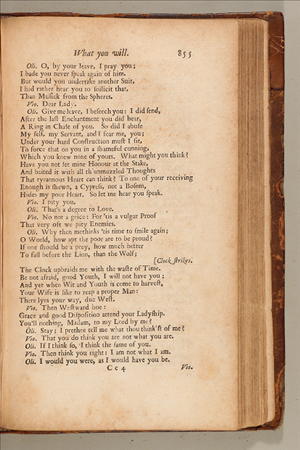 What you will. 855
Oli. O, by your leave, I pray you;
I bade you never speak again of him.
But would you undertake another Suit,
I had rather hear you to sollicit that,
Than Musick from the Spheres.
Vio. Dear Lady.
Oli. Give me leave, I beseech you: I did send,
After the last Enchantment you did hear,
A Ring in Chase of you. So did I abuse
My self, my Servant, and I fear me, you;
Under your hard Construction must I sit,
To force that on you in a shameful cunning,
Which you knew none of yours. What might you think?
Have you not set mine Honour at the Stake,
And baited it with all th'unmuzzled Thoughts
That tyrannous Heart can think? To one of your receiving
Enough is shewn, a Cypress, not a Bosom,
Hides my poor Heart. So let me hear you speak.
Vio. I pity you.
Oli. That's a degree to Love.
Vio. No not a grice: For 'tis a vulgar Proof
That very oft we pity Enemies.
Oli. Why then methinks 'tis time to smile again;
O World, how apt the poor are to be proud?
If one should be a prey, how much better
To fall before the Lion, than the Wolf;
[Clock strikes.
The Clock upbraids me with the waste of Time.
Be not afraid, good Youth, I will not have you;
And yet when Wit and Youth is come to harvest,
Your Wife is like to reap a proper Man:
There lyes your way, due West.
Vio. Then Westward hoe:
Grace and good Disposition attend your Ladyship.
You'll nothing, Madam, to my Lord by me?
Oli. Stay; I prethee tell me what thou think'st of me?
Vio. That you do think you are not what you are.
Oli. If I think so, I think the same of you.
Vio. Then think you right; I am not what I am.
Oli. I would you were, as I would have you be.
C c 4 Vio.